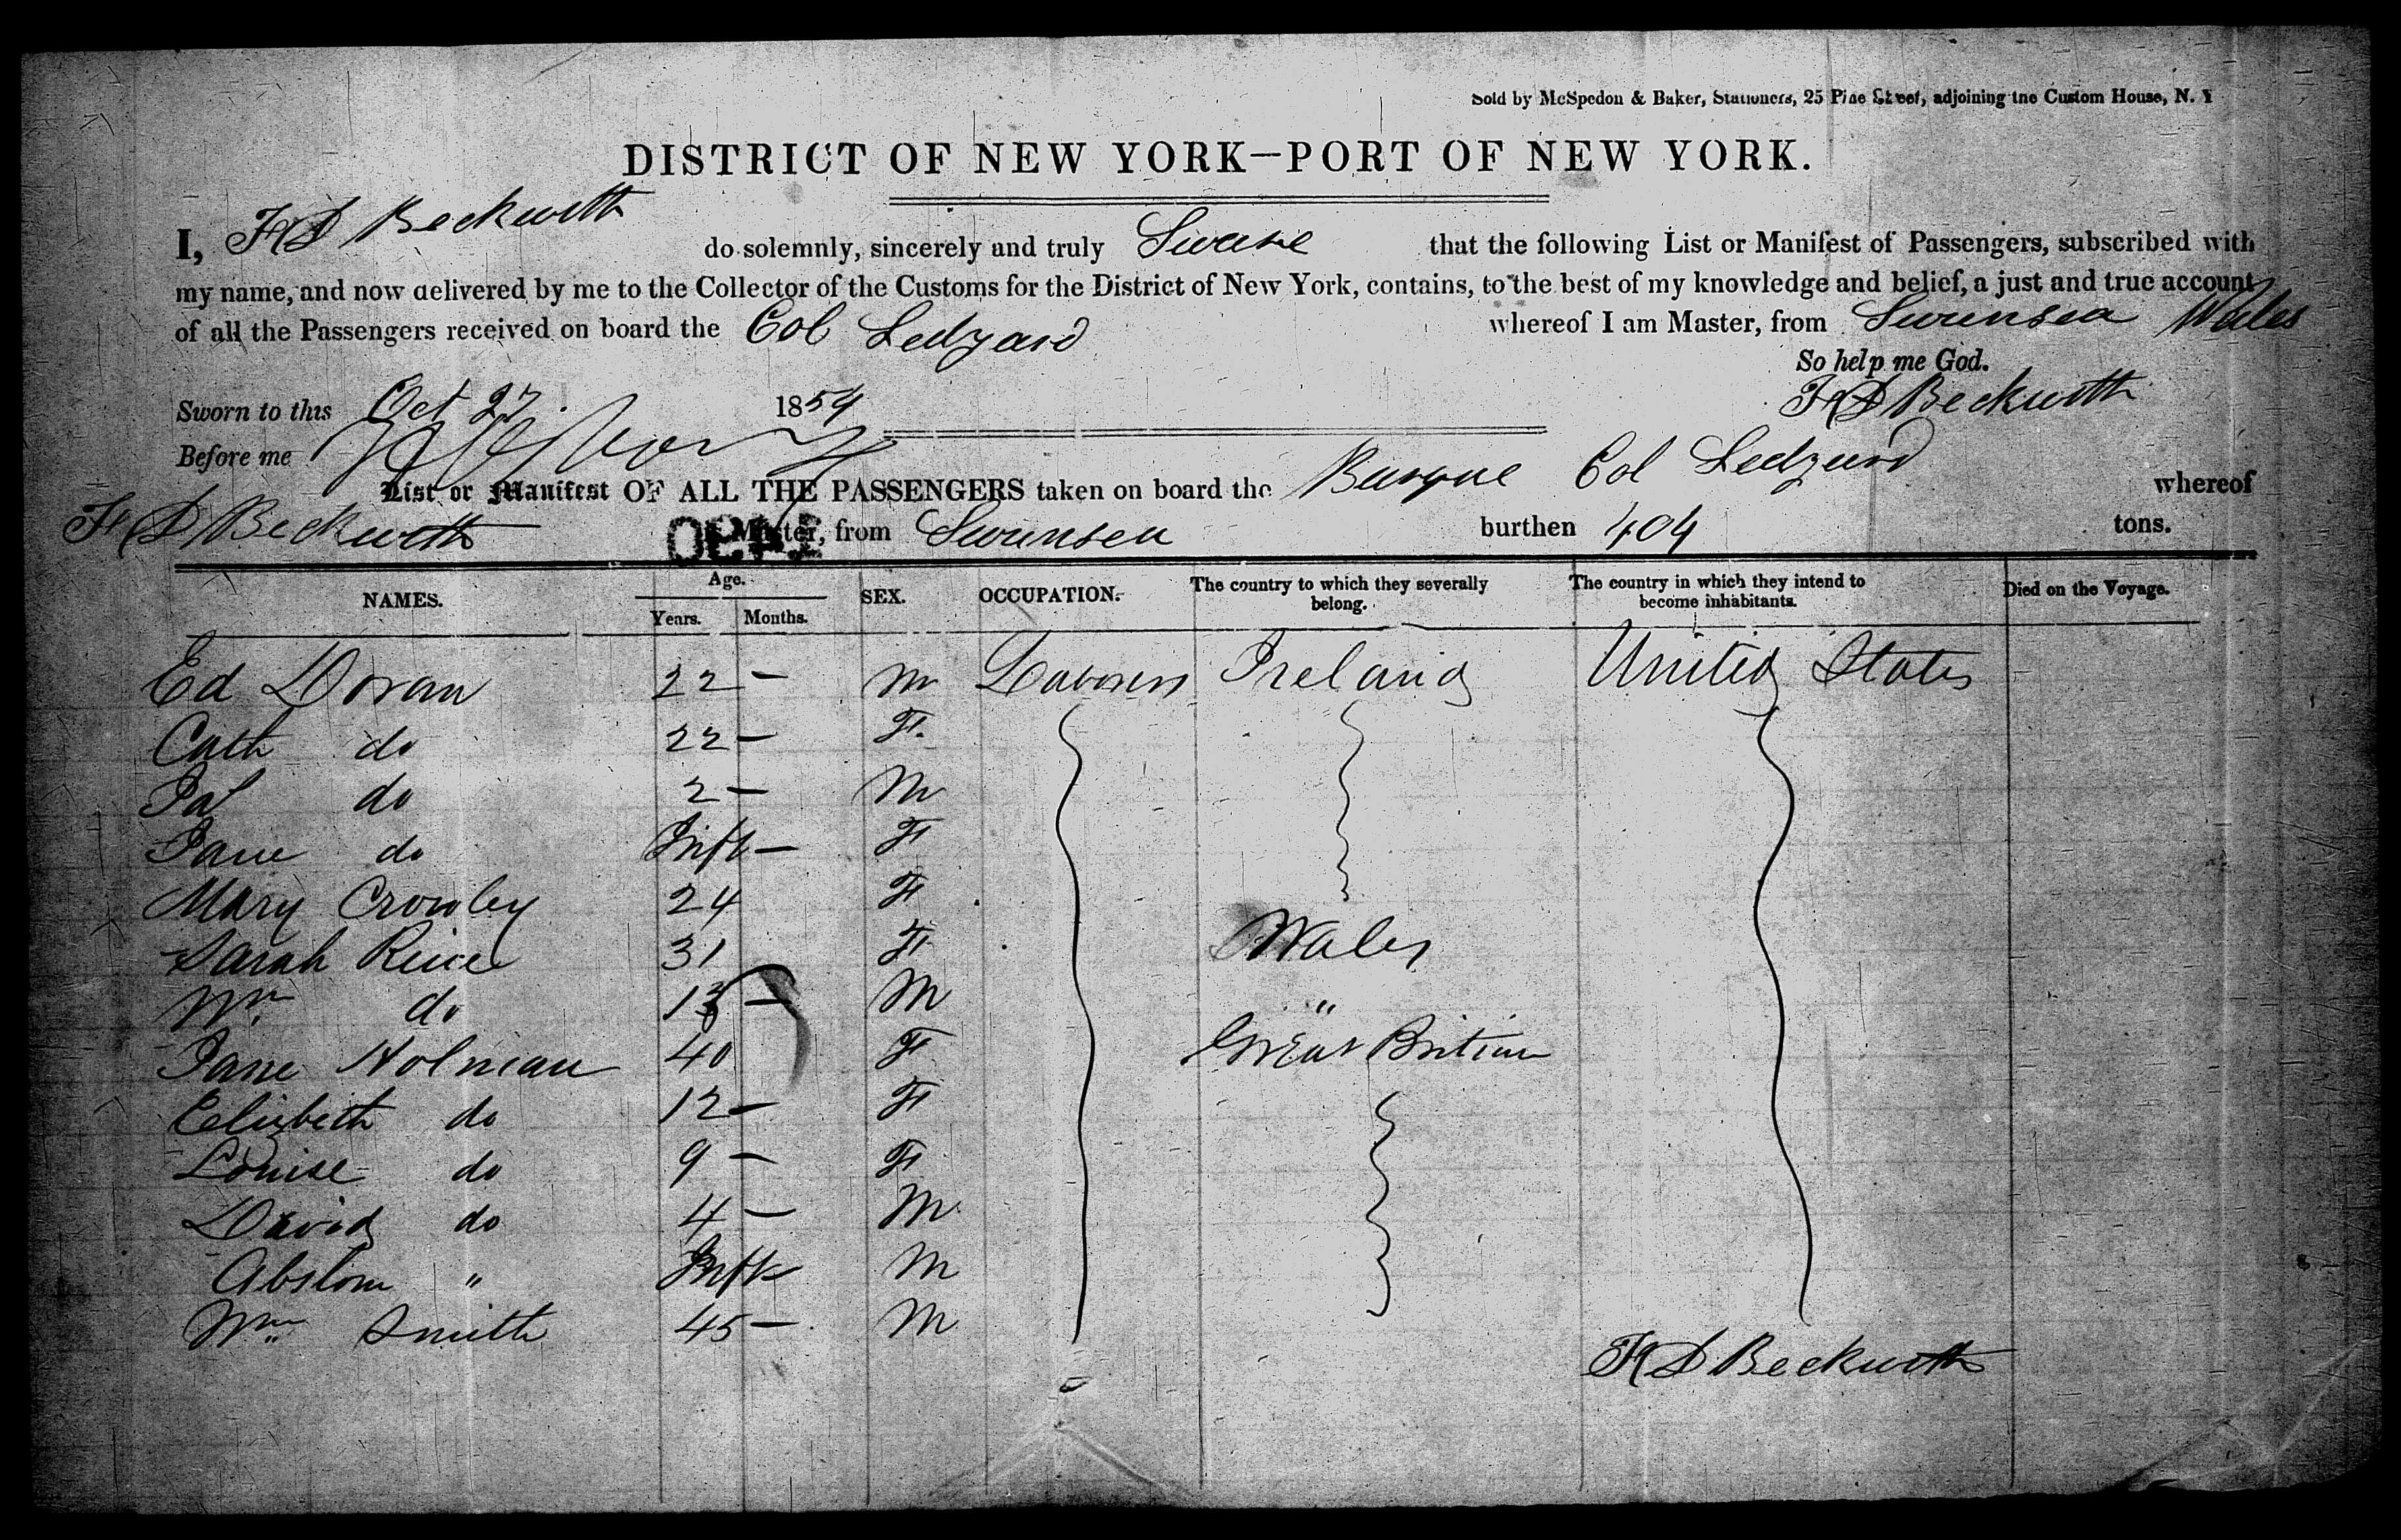 Sold by McSpedon & Baker, Stationers, 25 Pine Street, adjoining the Custom House, N. Y
DISTRICT OF NEW YORK—PORT OF NEW YORK.
I, F D Beckwith do solemnly, sincerely and truly Sware that the following List or Manifest of Passengers, subscribed with
my name, and now delivered by me to the Collector of the Customs for the District of New York, contains, to the best of my knowledge and belief, a just and true account
of all the Passengers received on board the Col Ledyard whereof I am Master, from Swansea Wales
So help me God.
Sworn to this Oct 27 1854 F D Beckwith
Before me
List or Manifest OF ALL THE PASSENGERS taken on board the Barque Col Ledyard whereof
F D Beckwith is Master, from Swansea burthen 404 tons.
NAMES. Age. Years. Months. SEX. OCCUPATION. The country to which they severally belong. The country in which they intend to become inhabitants. Died on the Voyage.
Ed Doran 22 — M Laborers Ireland United States
Cath do 22 — F.
Pat do 2 — M
Jane do Inft — F
Mary Crowley 24 F
Sarah Rice 31 F Wales
Wm do 13 — M "
Jane Holman 40 F Great Britian
Elizbeth do 12 — F
Louise do 9 — F
David do 4 — M
Abslom " Inft — M
Wm Smith 45 — M
F D Beckwith